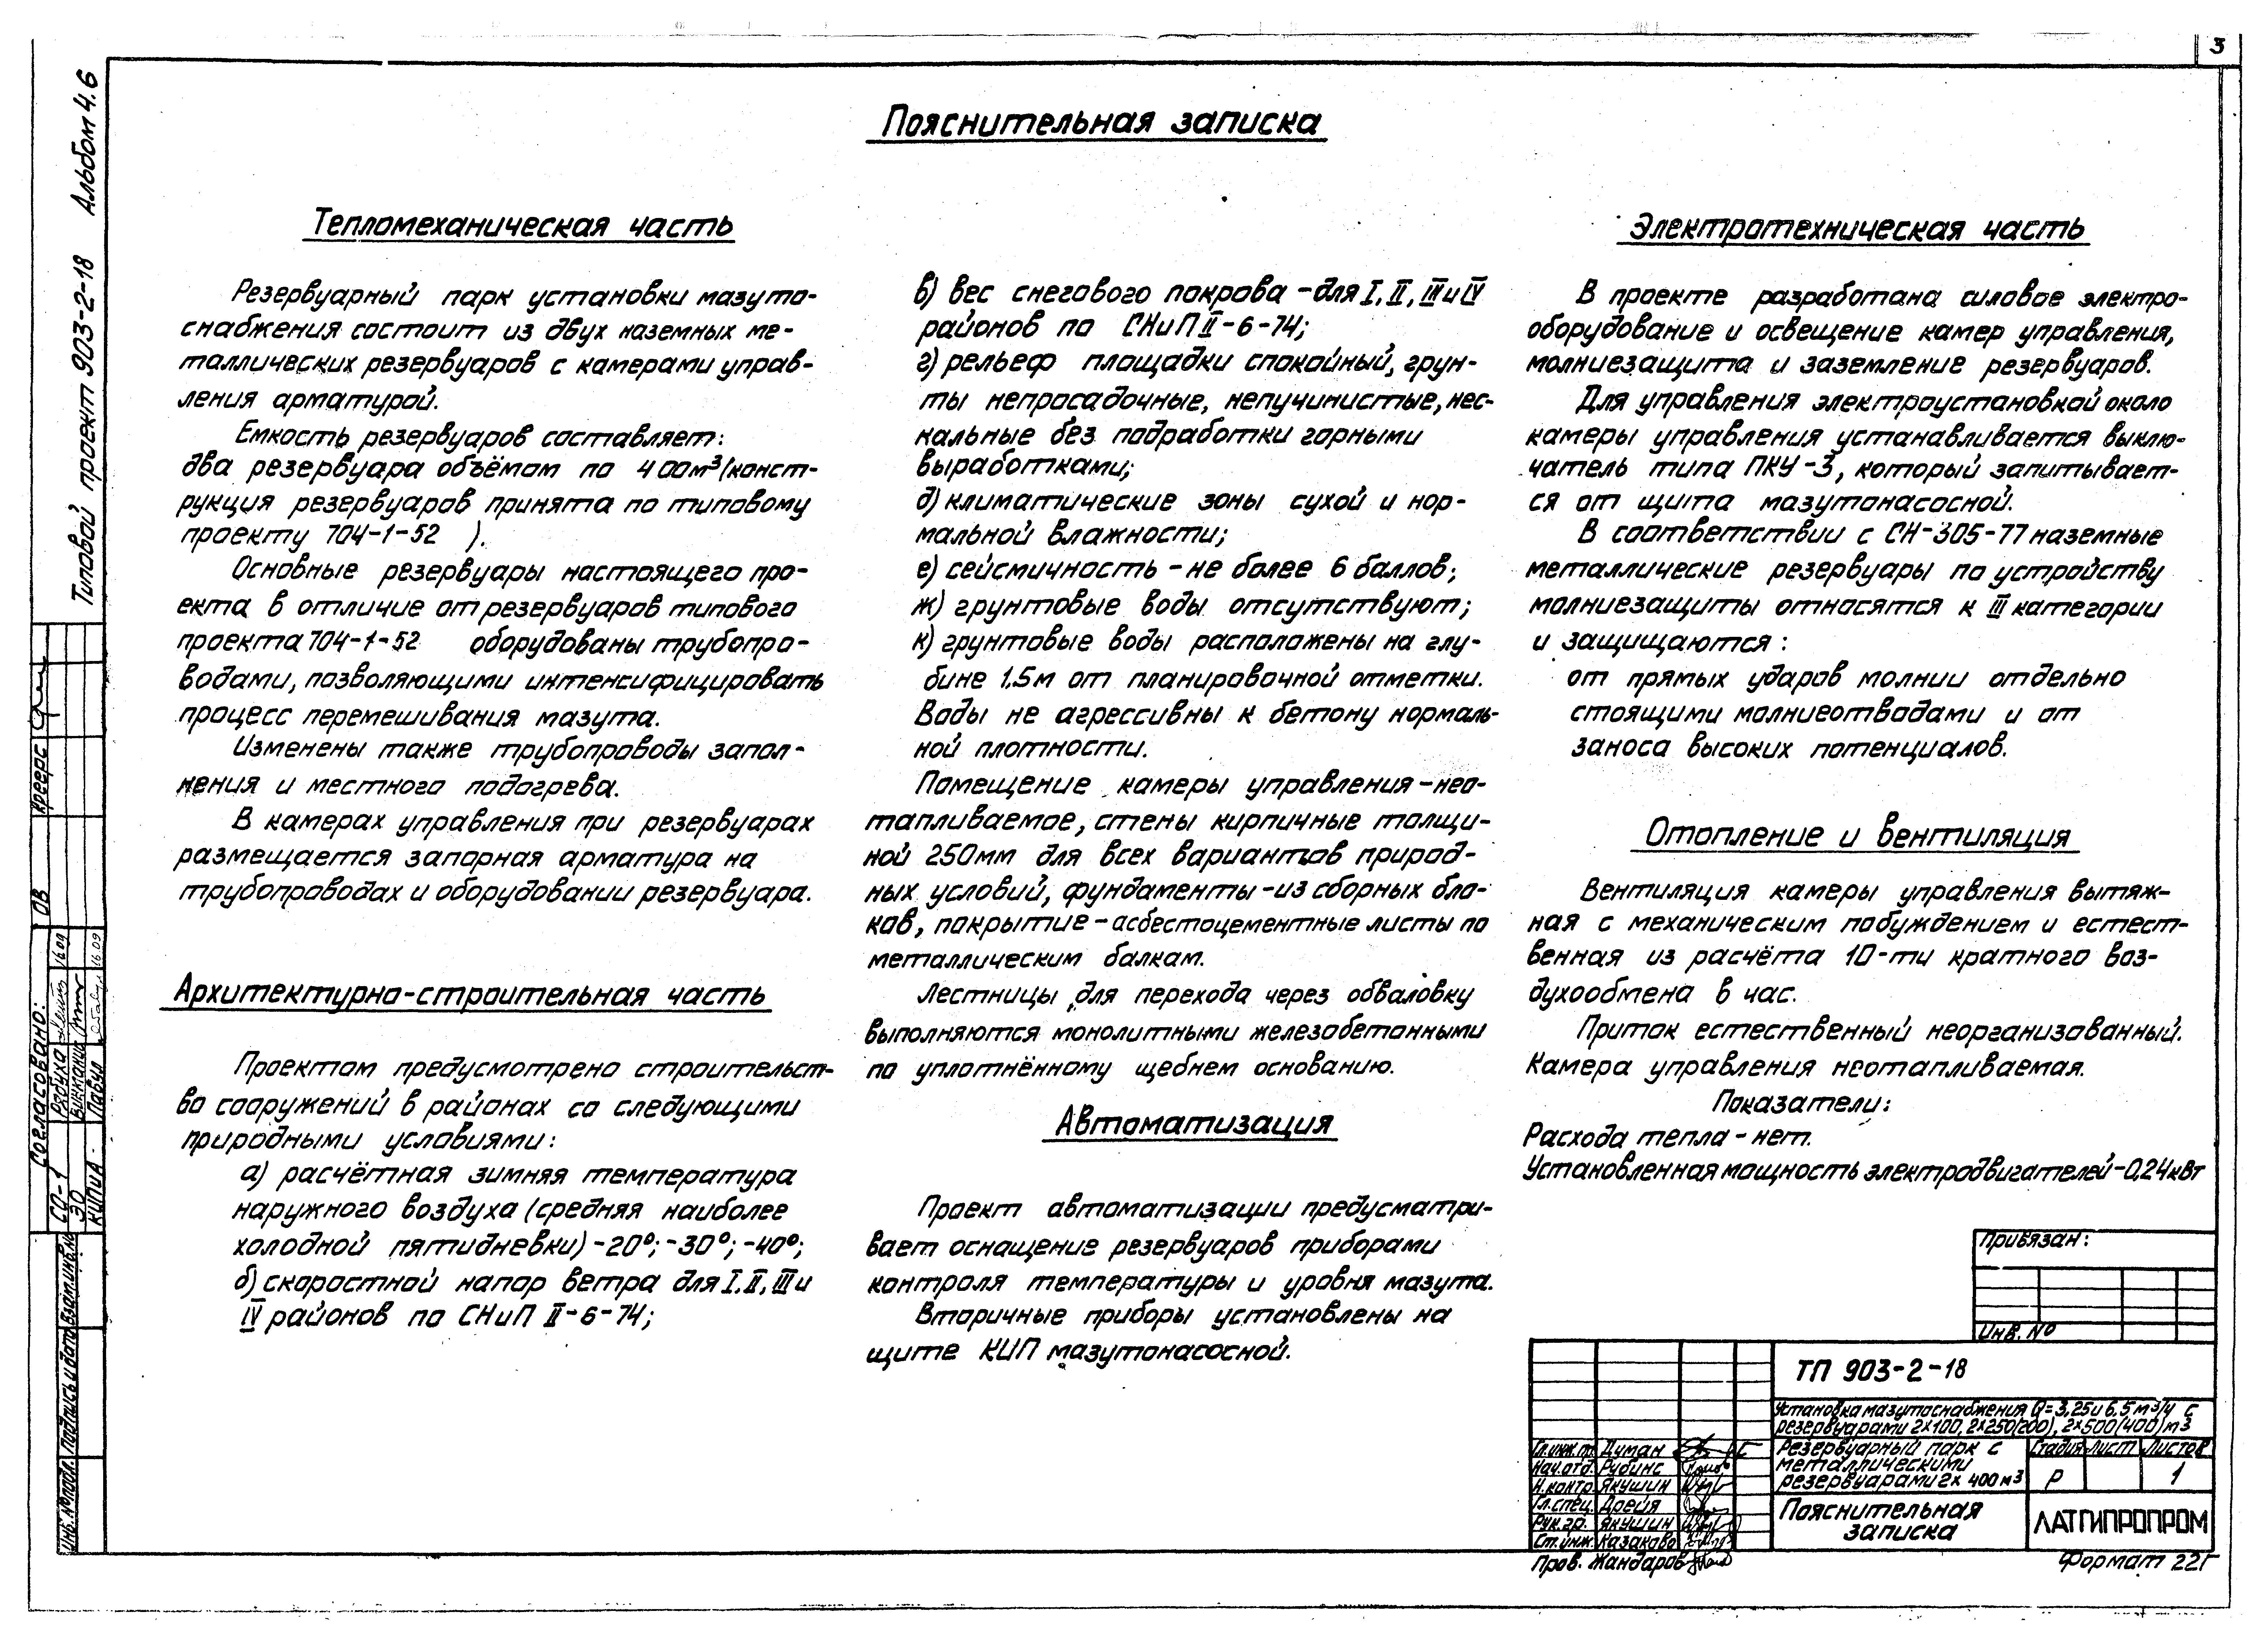 3
Типовой проект 903-2-18 Альбом 4.6
Пояснительная записка
Тепломеханическая часть
Резервуарный парк установки мазуто-
снабжения состоит из двух наземных ме-
таллических резервуаров с камерами управ-
ления арматурой.
Емкость резервуаров составляет:
два резервуара объёмом по 400м³ (конст-
рукция резервуаров принята по типовому
проекту 704-1-52 ).
Основные резервуары настоящего про-
екта в отличие от резервуаров типового
проекта 704-1-52 оборудованы трубопро-
водами, позволяющими интенсифицировать
процесс перемешивания мазута.
Изменены также трубопроводы запол-
нения и местного подогрева.
В камерах управления при резервуарах
размещается запорная арматура на
трубопроводах и оборудовании резервуара.
Архитектурно-строительная часть
Проектом предусмотрено строительст-
во сооружений в районах со следующими
природными условиями:
а) расчётная зимняя температура
наружного воздуха (средняя наиболее
холодной пятидневки) -20°; -30°; -40°;
б) скоростной напор ветра для I, II, III и
IV районов по СНиП II-6-74;
в) вес снегового покрова - для I, II, III и IV
районов по СНиП II-6-74;
г) рельеф площадки спокойный, грун-
ты непросадочные, непучинистые, нес-
кальные без подработки горными
выработками;
д) климатические зоны сухой и нор-
мальной влажности;
е) сейсмичность - не более 6 баллов;
ж) грунтовые воды отсутствуют;
к) грунтовые воды расположены на глу-
бине 1.5м от планировочной отметки.
Воды не агрессивны к бетону нормаль-
ной плотности.
Помещение камеры управления - нео-
тапливаемое, стены кирпичные толщи-
ной 250мм для всех вариантов природ-
ных условий, фундаменты - из сборных бло-
ков, покрытие - асбестоцементные листы по
металлическим балкам.
Лестницы для перехода через обваловку
выполняются монолитными железобетонными
по уплотнённому щебнем основанию.
Автоматизация
Проект автоматизации предусматри-
вает оснащение резервуаров приборами
контроля температуры и уровня мазута.
Вторичные приборы установлены на
щите КИП мазутонасосной.
Электротехническая часть
В проекте разработана силовое электро-
оборудование и освещение камер управления,
молниезащита и заземление резервуаров.
Для управления электроустановкой около
камеры управления устанавливается выклю-
чатель типа ПКУ-3, который запитывает-
ся от щита мазутонасосной.
В соответствии с СН-305-77 наземные
металлические резервуары по устройству
молниезащиты относятся к III категории
и защищаются:
от прямых ударов молнии отдельно
стоящими молниеотводами и от
заноса высоких потенциалов.
Отопление и вентиляция
Вентиляция камеры управления вытяж-
ная с механическим побуждением и естест-
венная из расчёта 10-ти кратного воз-
духообмена в час.
Приток естественный неорганизованный.
Камера управления неотапливаемая.
Показатели:
Расхода тепла - нет.
Установленная мощность электродвигателей - 0,24 кВт
Привязан:
Инв. №
ТП 903-2-18
Установка мазутоснабжения Q=3,25 и 6,5 м³/ч с
резервуарами 2×100, 2×250(200), 2×500(400) м³
Гл.инж.пр. Думан
Нач.отд. Рубинс
Н.контр. Якушин
Гл.спец. Дрейя
Рук.гр. Якушин
Ст.инж. Казакова
Пров. Жандаров
Резервуарный парк с
металлическими
резервуарами 2×400 м³
Стадия Лист Листов
Р 1
Пояснительная
записка
ЛАТГИПРОПРОМ
Формат 22Г
Согласовано:
СО-1 Рябуха 16.09
ЭО Викманис
КИПиА Павул 16.09
ОВ Креерс
Взам.инв.№
Подпись и дата
Инв.№ подл.